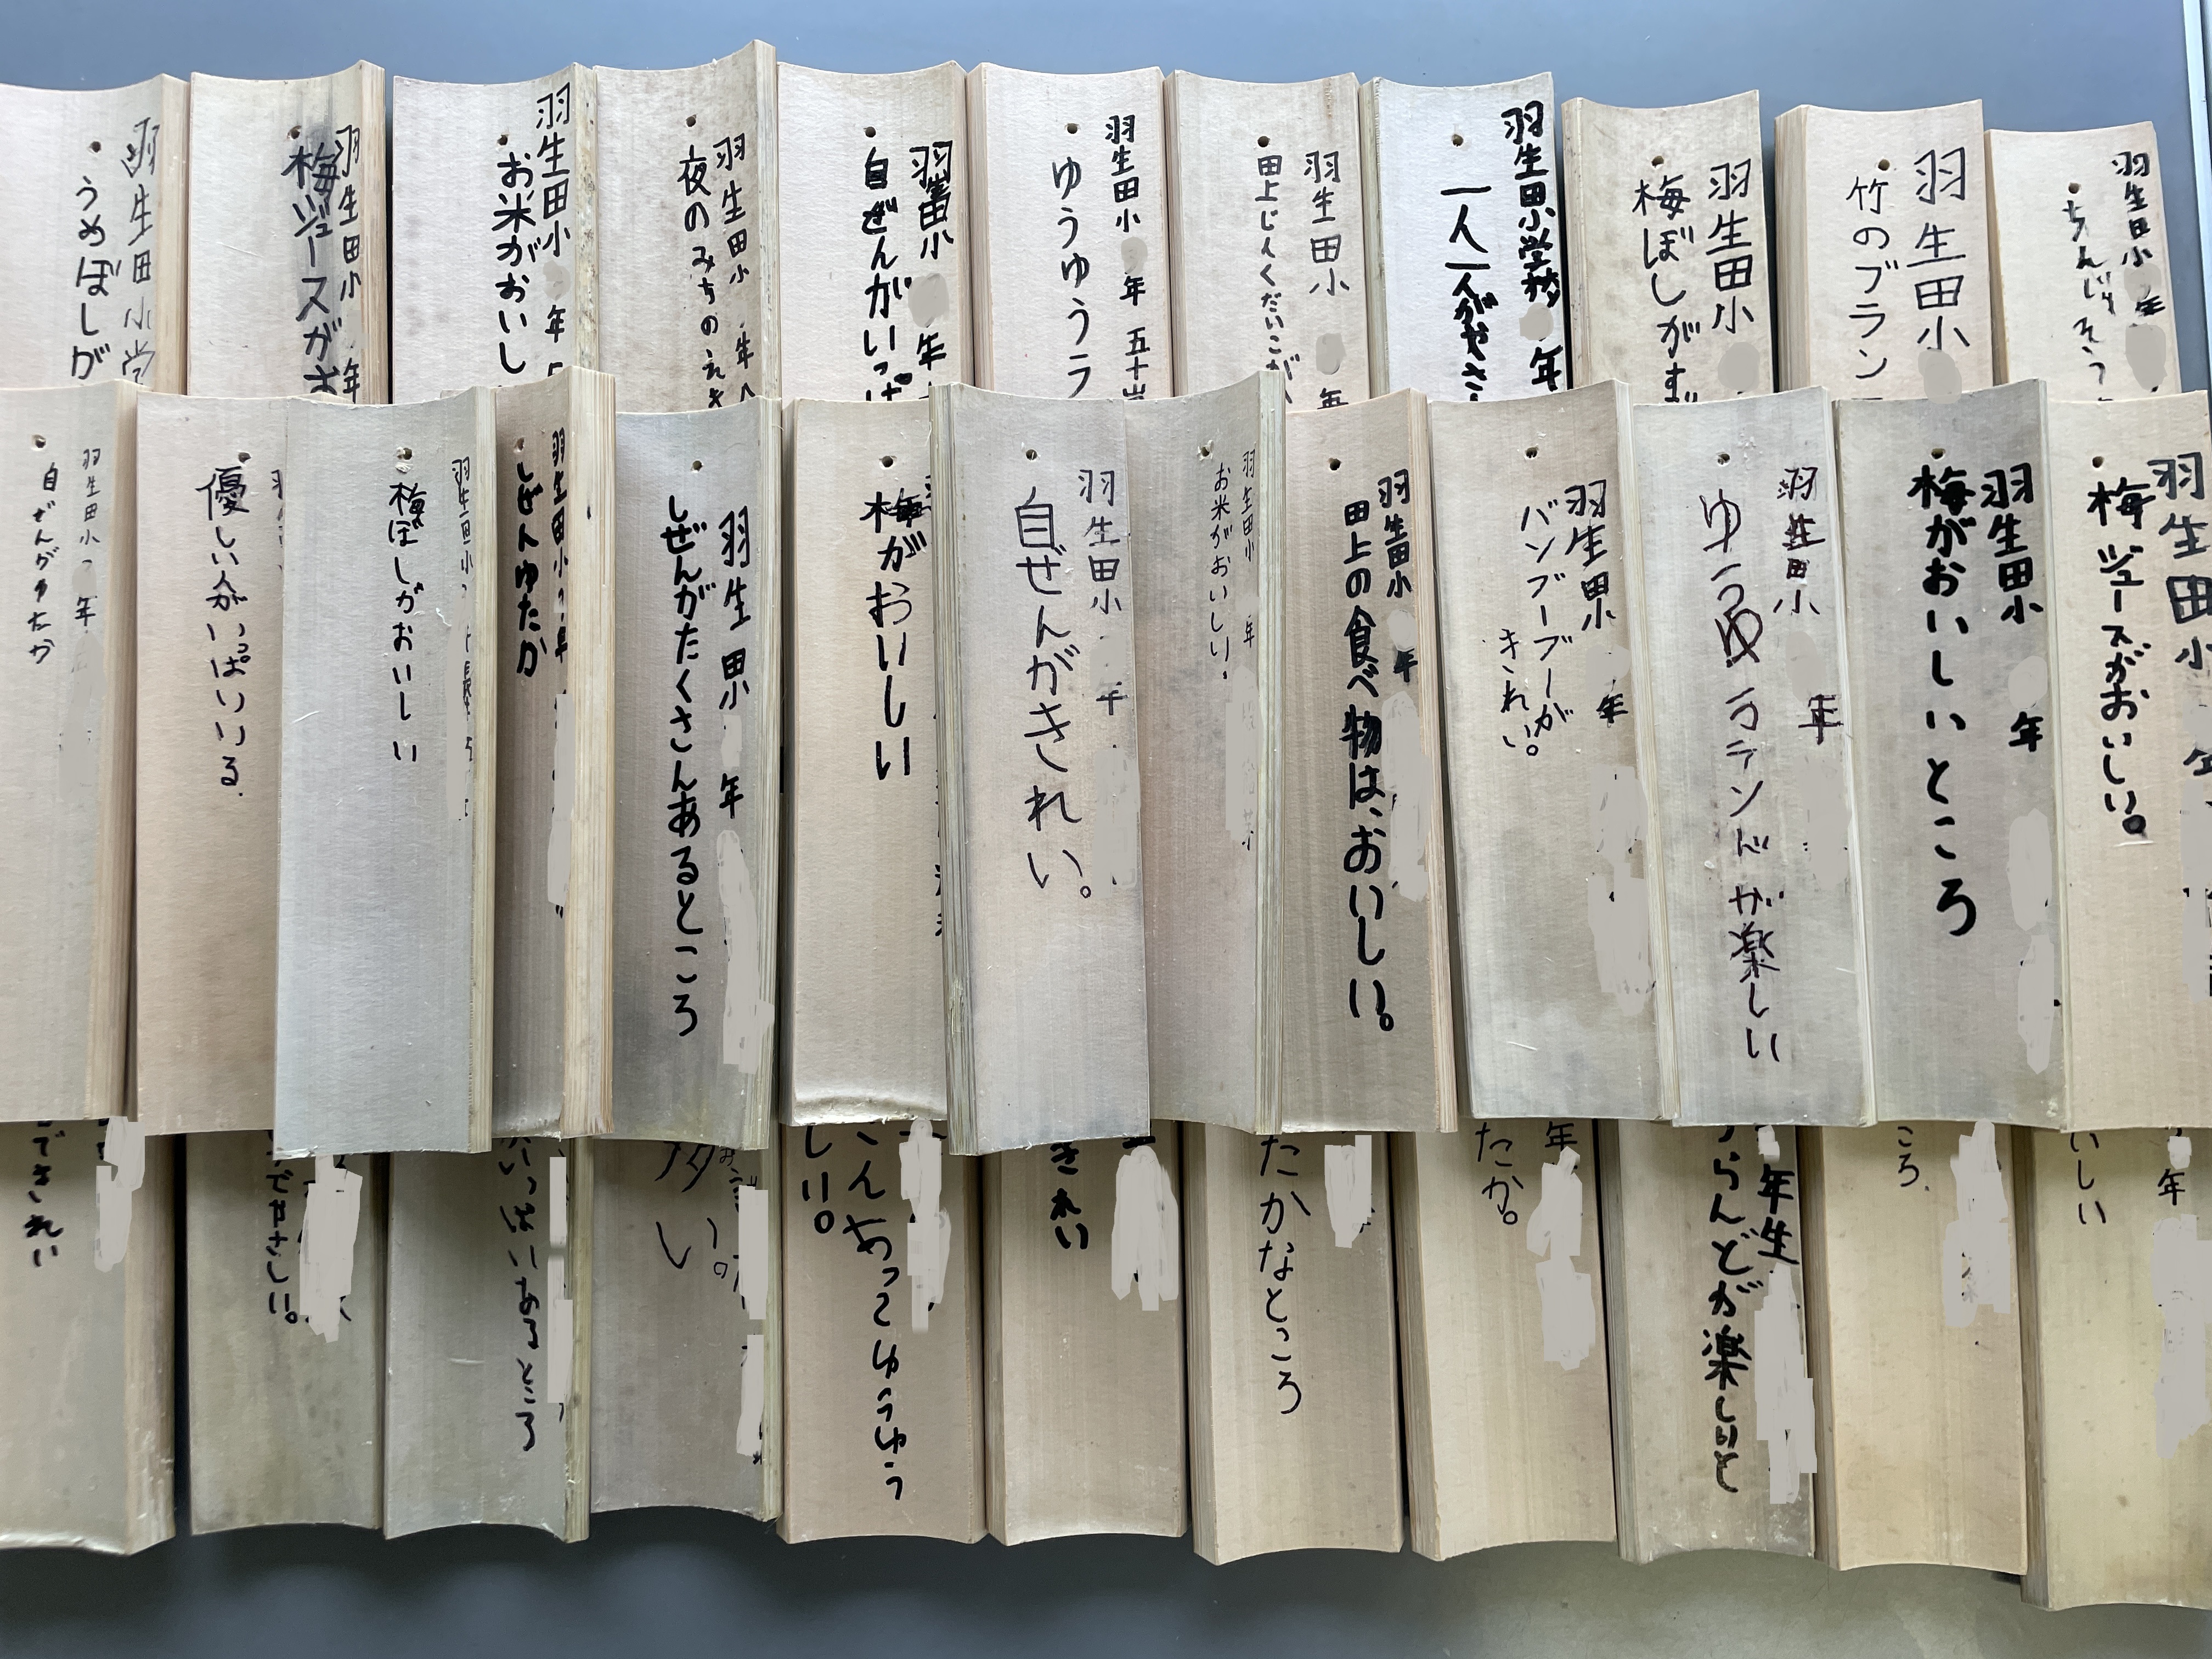 羽生田小
ちんじゅそう
羽生田小
竹のブラン
羽生田小
梅ぼしがす
羽生田小学校 年
一人一人がやさ
羽生田小 年
田上じくだいこが
羽生田小 年 五十
ゆうゆうラ
羽生田小 年
自ぜんがいっぱ
羽生田小 年
夜のみちの
羽生田小 年
お米がおいし
羽生田小 年
梅ジュースがお
羽生田小学
うめぼしが
羽生田小 年
梅ジュースがおいしい。
羽生田小 年
梅がおいしいところ
羽生田小 年
ゆうゆうランドが楽しい
羽生田小 年
バンブーブーが
きれい。
羽生田小 年
田上の食べ物は、おいしい。
羽生田小 年
お米がおいしい。
羽生田小 年
自ぜんがきれい。
梅がおいしい
羽生田小 年
しぜんがたくさんあるところ
羽生田小 年
しぜんゆたか
羽生田小
梅ぼしがおいしい
優しい人がいっぱいいる.
羽生田小 年
自ぜんがゆたか
年
いしい
ころ.
年生
らんどが楽しいと
年
たか。
たかなところ
きれい
さんあってゆうゆう
しい。
多い。
いっぱいあるところ
やさしい。
できれい